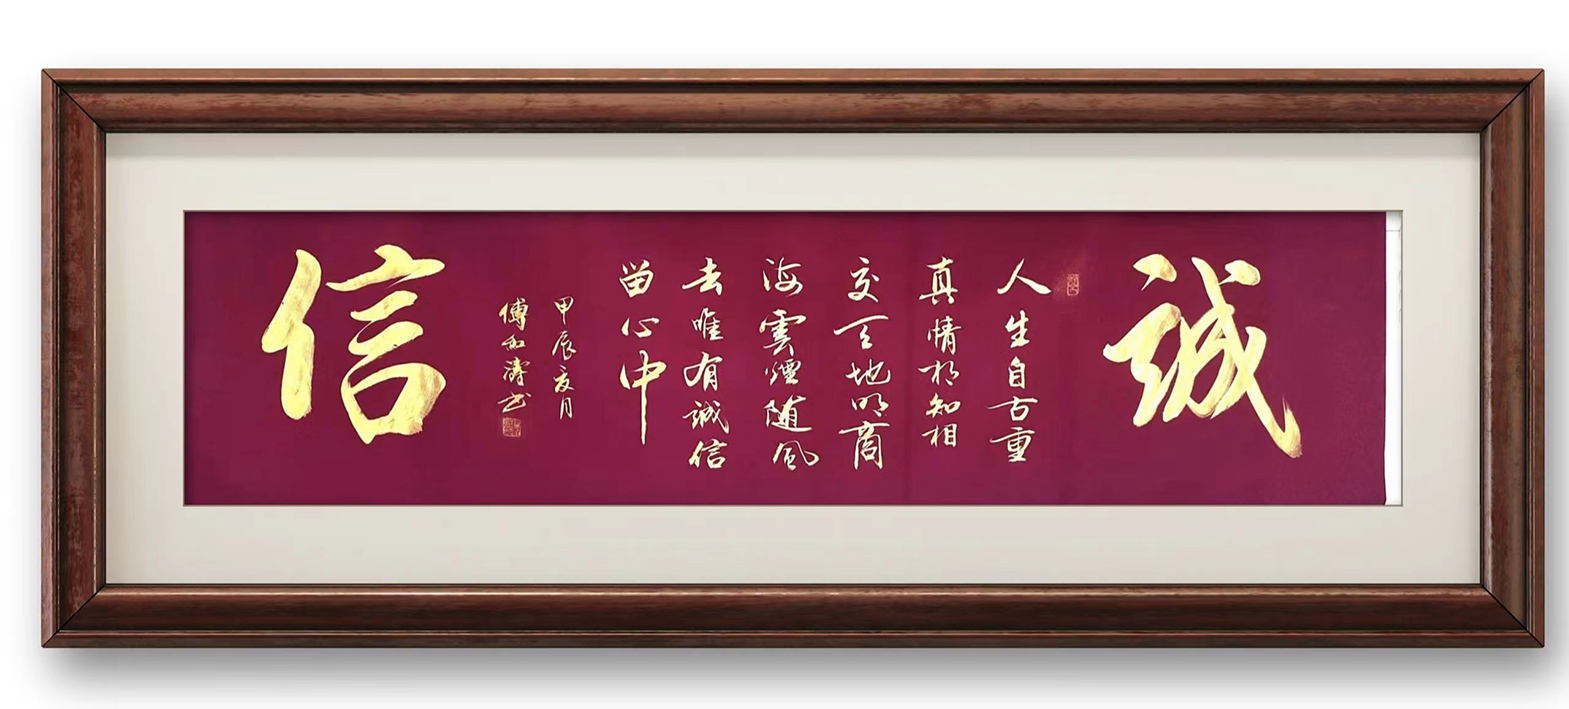 誠
人生自古重
真情相知相
交天地明商
海雲煙随風
去唯有誠信
留心中
甲辰夏月
傅和濤书
信